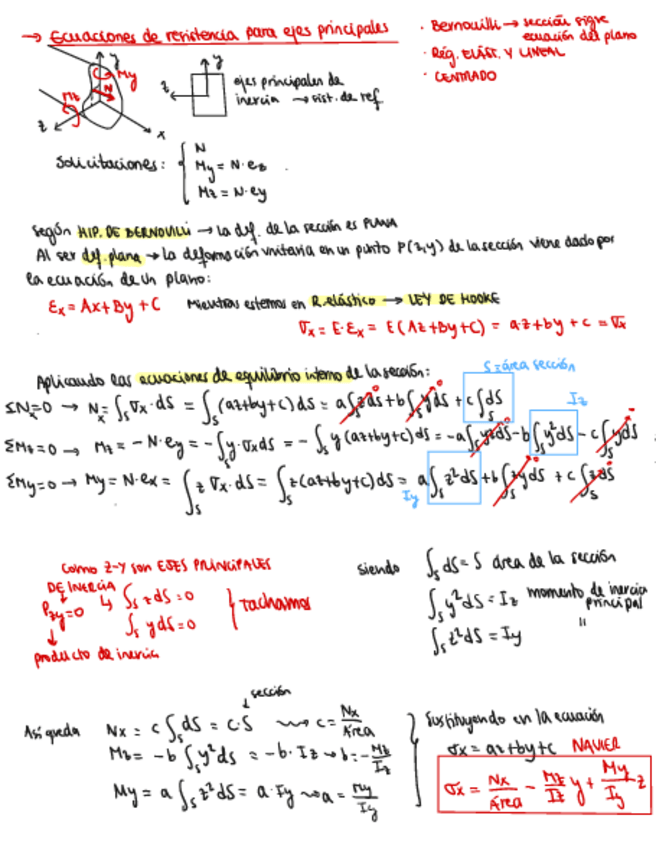 → Ecuaciones de resistencia para ejes principales
· Bernouilli → sección sigue ecuación del plano
· Rég. ELÁST. Y LINEAL
· CENTRADO
y
My
Mz
N
z
x
y
z
ejes principales de
inercia → sist. de ref
Solicitaciones: { N
My = N·ez
Mz = N·ey
Según HIP. DE BERNOVILLI → la def. de la sección es PLANA
Al ser def. plana → la deformación unitaria en un punto P(z,y) de la sección viene dado por
la ecuación de un plano:
Ɛx = Ax+By+C Mientras estemos en R.elástico → LEY DE HOOKE
σx = E·Ɛx = E(Az+By+C) = az+by+c = σx
Aplicando las ecuaciones de equilibrio interno de la sección:
S=área sección
ΣNx=0 → Nx = ∫s σx·dS = ∫s (az+by+c)dS = a∫s zds + b∫s yds + c∫s dS
Iz
ΣMz=0 → Mz = -N·ey = -∫s y·σxdS = -∫s y(az+by+c)dS = -a∫s yzdS - b∫s y²dS - c∫s ydS
ΣMy=0 → My = N·ex = ∫s z σx·dS = ∫s z(az+by+c)dS = a∫s z²dS + b∫s zydS + c∫s zdS
Iy
Como z-y son EJES PRINCIPALES
DE INERCIA
Pzy=0 ↳ ∫s zdS=0
∫s ydS=0
} Tachamos
producto de inercia
siendo ∫s dS = S área de la sección
∫s y²dS = Iz momento de inercia principal
∫s z²dS = Iy "
sección
Así queda Nx = c∫s dS = c·S → c = Nx/Área
Mz = -b∫s y²ds = -b·Iz → b = -Mz/Iz
My = a∫s z²dS = a·Iy → a = My/Iy
Sustituyendo en la ecuación
σx = az+by+c NAVIER
σx = Nx/Área - Mz/Iz y + My/Iy z